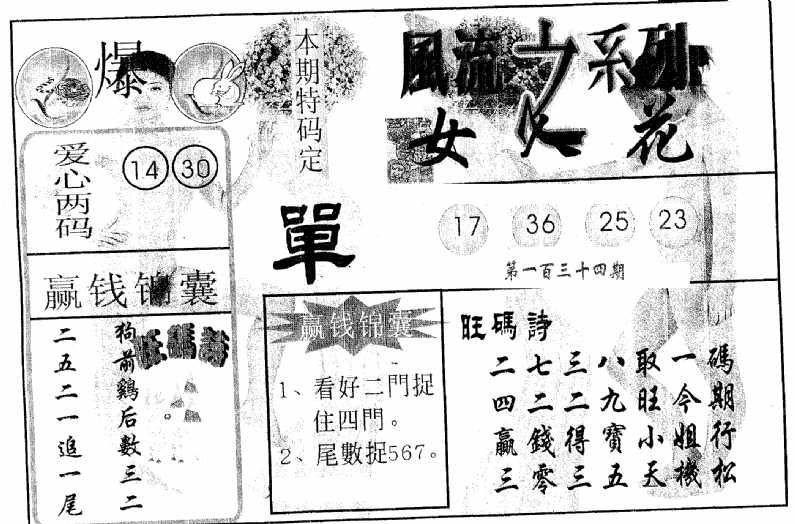 爆
本期特码定
單
風流之系列
女人花
爱心两码
14 30
17 36 25 23
第一百三十四期
赢钱锦囊
旺碼詩
狗前鷄后數三二
二五二一追一尾
赢钱锦囊
1、看好二門捉
住四門。
2、尾數捉567。
旺碼詩
碼期行松
一今姐機
取旺小天
八九寶五
三二得三
七二錢零
二四贏三